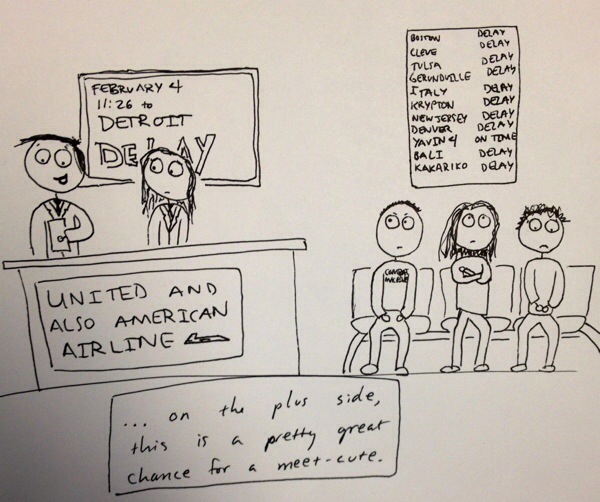 FEBRUARY 4
11:26 to
DETROIT
DELAY
BOSTON DELAY
CLEVE DELAY
TULSA DELAY
GERUNDVILLE DELAY
ITALY DELAY
KRYPTON DELAY
NEW JERSEY DELAY
DENVER DELAY
YAVIN 4 ON TIME
BALI DELAY
KAKARIKO DELAY
COMBAT
UNITED AND
ALSO AMERICAN
AIRLINE
... on the plus side,
this is a pretty great
chance for a meet-cute.